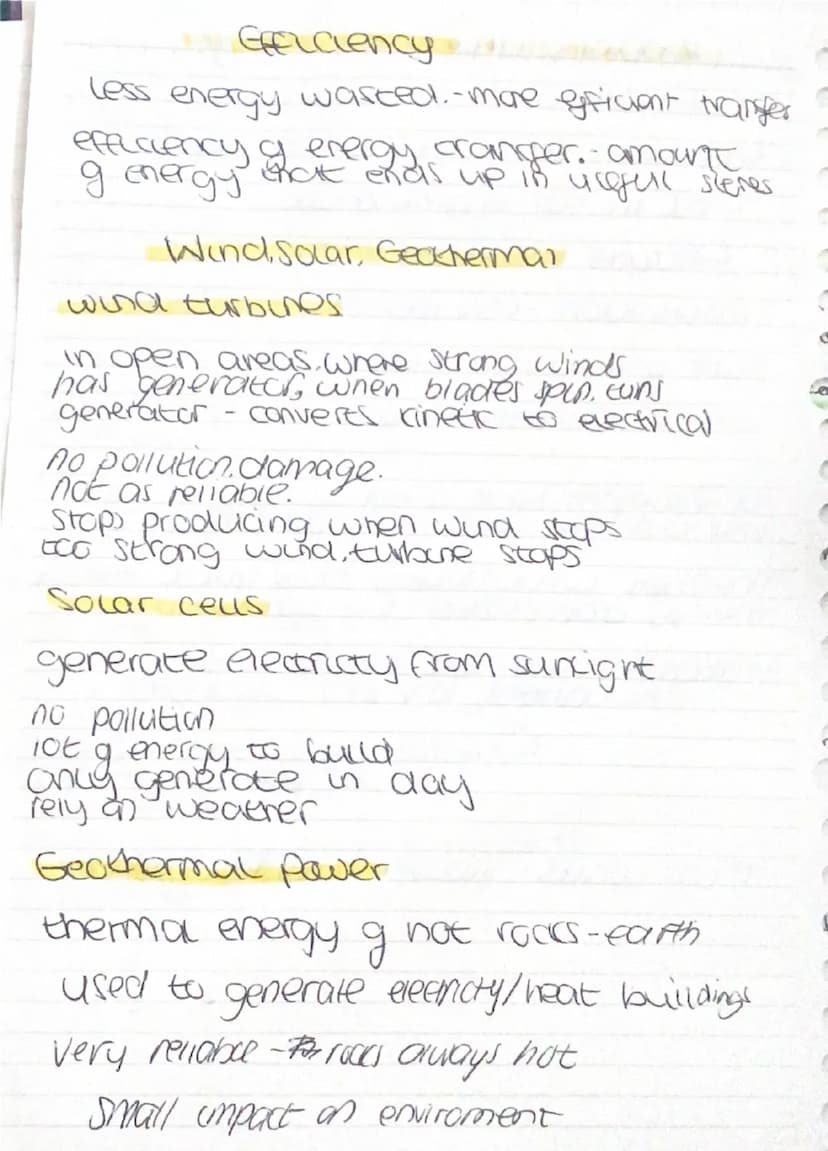 Efficiency
less energy wasted.-more efficient transfer
efficiency of energy transfer.-amount
of energy that ends up in useful stores
Wind, Solar, Geothermal
wind turbines
in open areas, where strong winds
has generator, when blades spin, turns
generator - converts kinetic to electrical
no pollution, damage.
not as reliable.
stops producing when wind stops
too strong wind, turbine stops
Solar cells
generate electricty from sunlight
no pollution
lot of energy to build
only generate in day
rely on weather
Geothermal power
thermal energy of hot rocks-earth
used to generate electricity/heat buildings
very reliable - rocks always hot
small impact on enviroment